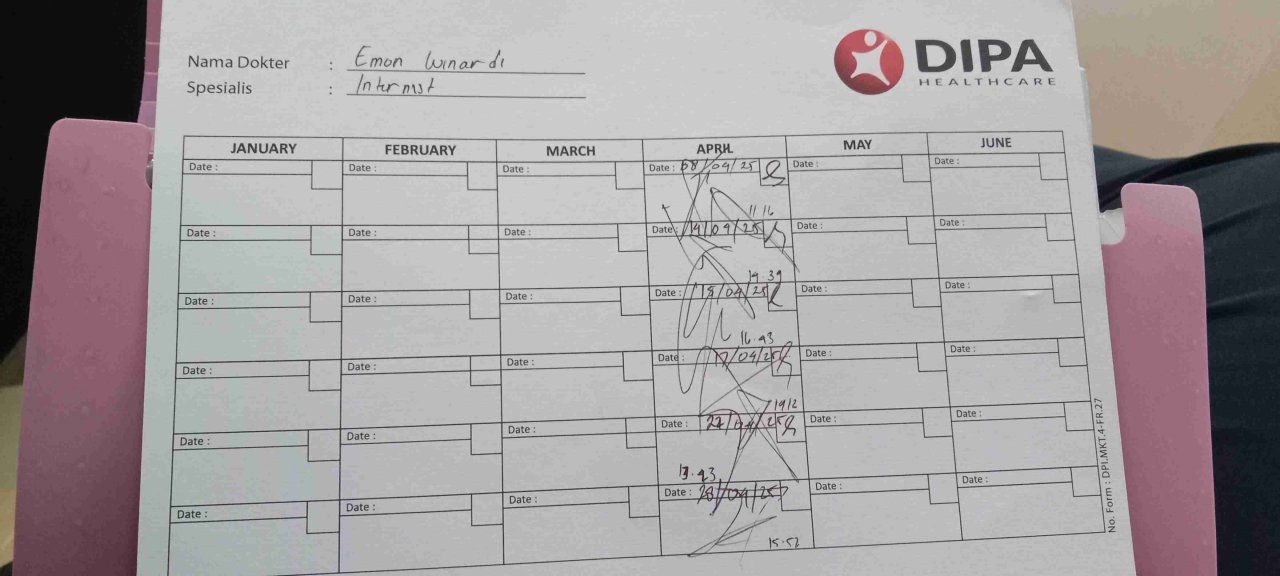 DIPA
HEALTHCARE
Nama Dokter : Emon Winardi
Spesialis : Internist
JANUARY FEBRUARY MARCH APRIL MAY JUNE
Date : Date : Date : Date : 08/04/25 Date : Date :
11 16
Date : Date : Date : Date : 14/04/25 Date : Date :
19.39
Date : Date : Date : Date : 15/04/25 Date : Date :
16.43
Date : Date : Date : Date : 17/04/25 Date : Date :
1912
Date : Date : Date : Date : 22/04/25 Date : Date :
Date : Date : Date : Date : 28/04/25 Date : Date :
15.52
No. Form : DPI.MKT.4-FR.27